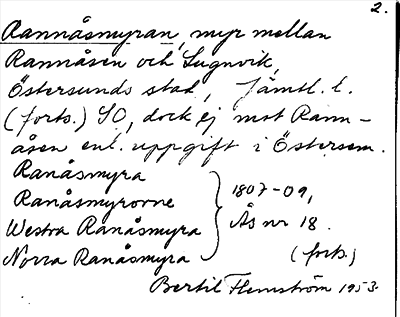 2.
Rannåsmyran, myr mellan
Rannåsen och Lugnvik,
Östersunds stad, Jämtl. l.
(forts.) SO, dock ej mot Rann-
åsen enl. uppgift i Östersom.
Ranåsmyra
Ranåsmyrorne
Westra Ranåsmyra
Norra Ranåsmyra
1807-09,
Ås nr 18.
(forts.)
Bertil Flemström 1953.